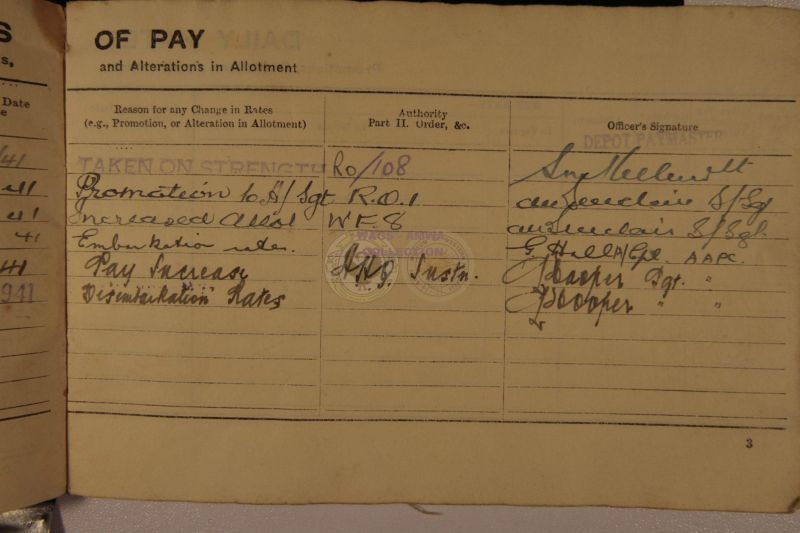 S
OF PAY
s,
and Alterations in Allotment
Date
e
Reason for any Change in Rates
(e.g., Promotion, or Alteration in Allotment)
Authority
Part II. Order, &c.
Officer's Signature
DEPOT PAYMASTER
/41
TAKEN ON STRENGTH Ro/108
Promotion to A/Sgt R.O.1 S/Sgt
41 Increased Allot WF8 S/Sgt
41 Embarkation rates. G. Hall A/Cpl. AAPC.
41 Pay Increase AHQ. Instn. Cooper Sgt. "
1941 Disimbarkation Rates Cooper " "
COLLECTION
3